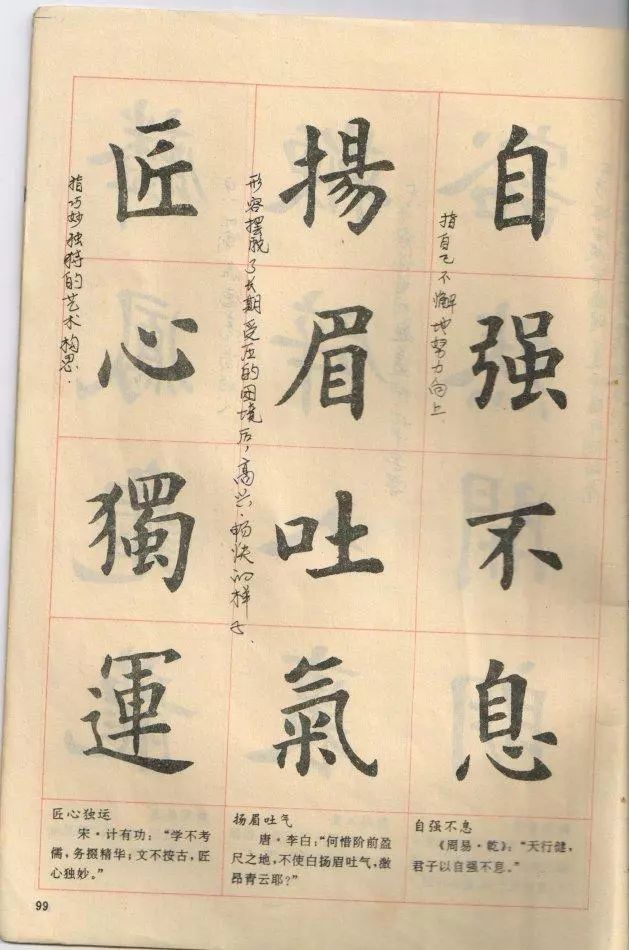 自强不息
指自己不懈地努力向上
揚眉吐氣
形容摆脱了长期受压的困境后，高兴、畅快的样子．
匠心獨運
指巧妙独特的艺术构思．
自强不息
《周易·乾》：“天行健，
君子以自强不息。”
扬眉吐气
唐·李白：“何惜阶前盈
尺之地，不使白扬眉吐气，激
昂青云耶？”
匠心独运
宋·计有功：“学不考
儒，务掇精华；文不按古，匠
心独妙。”
99